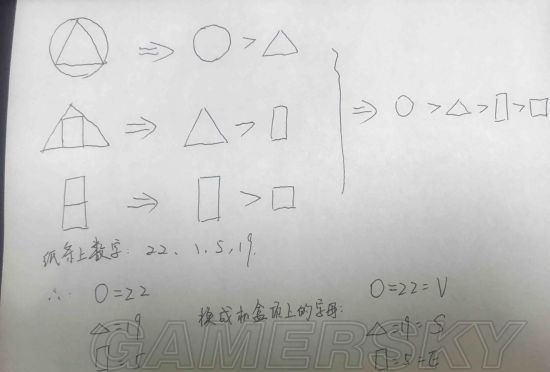 ⇒ ○ > △
⇒ △ > ▯ ⇒ ○ > △ > ▯ > □
⇒ ▯ > □
纸条上数字: 22、1、5、19.
∴ ○=22 ○=22=V
换成机盒顶上的字母:
△=19 △=19=S
▯=5 ▯=5=E
GAMERSKY